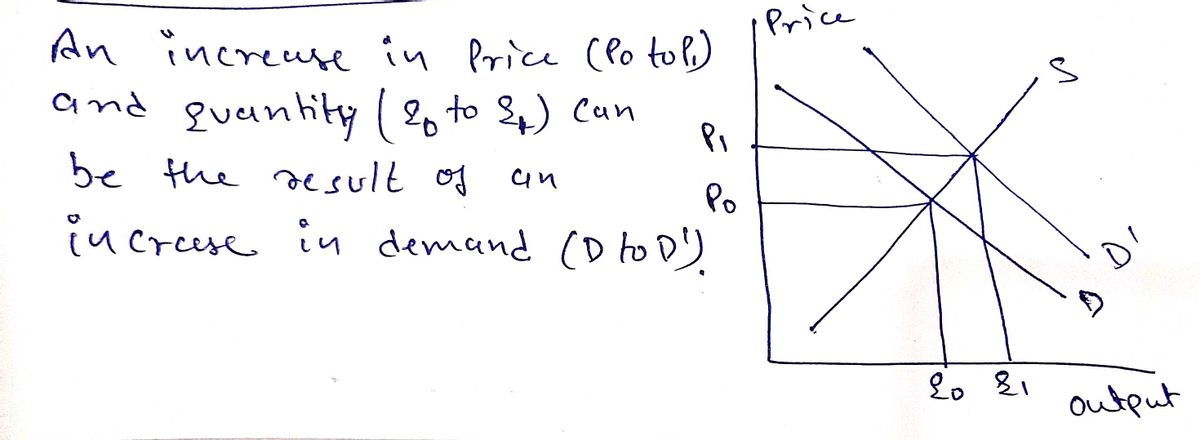 An increase in Price (P0 to P1)
and quantity (q0 to q1) can
be the result of an
increese in demand (D to D').
Price
S
P1
P0
D'
D
q0 q1
output